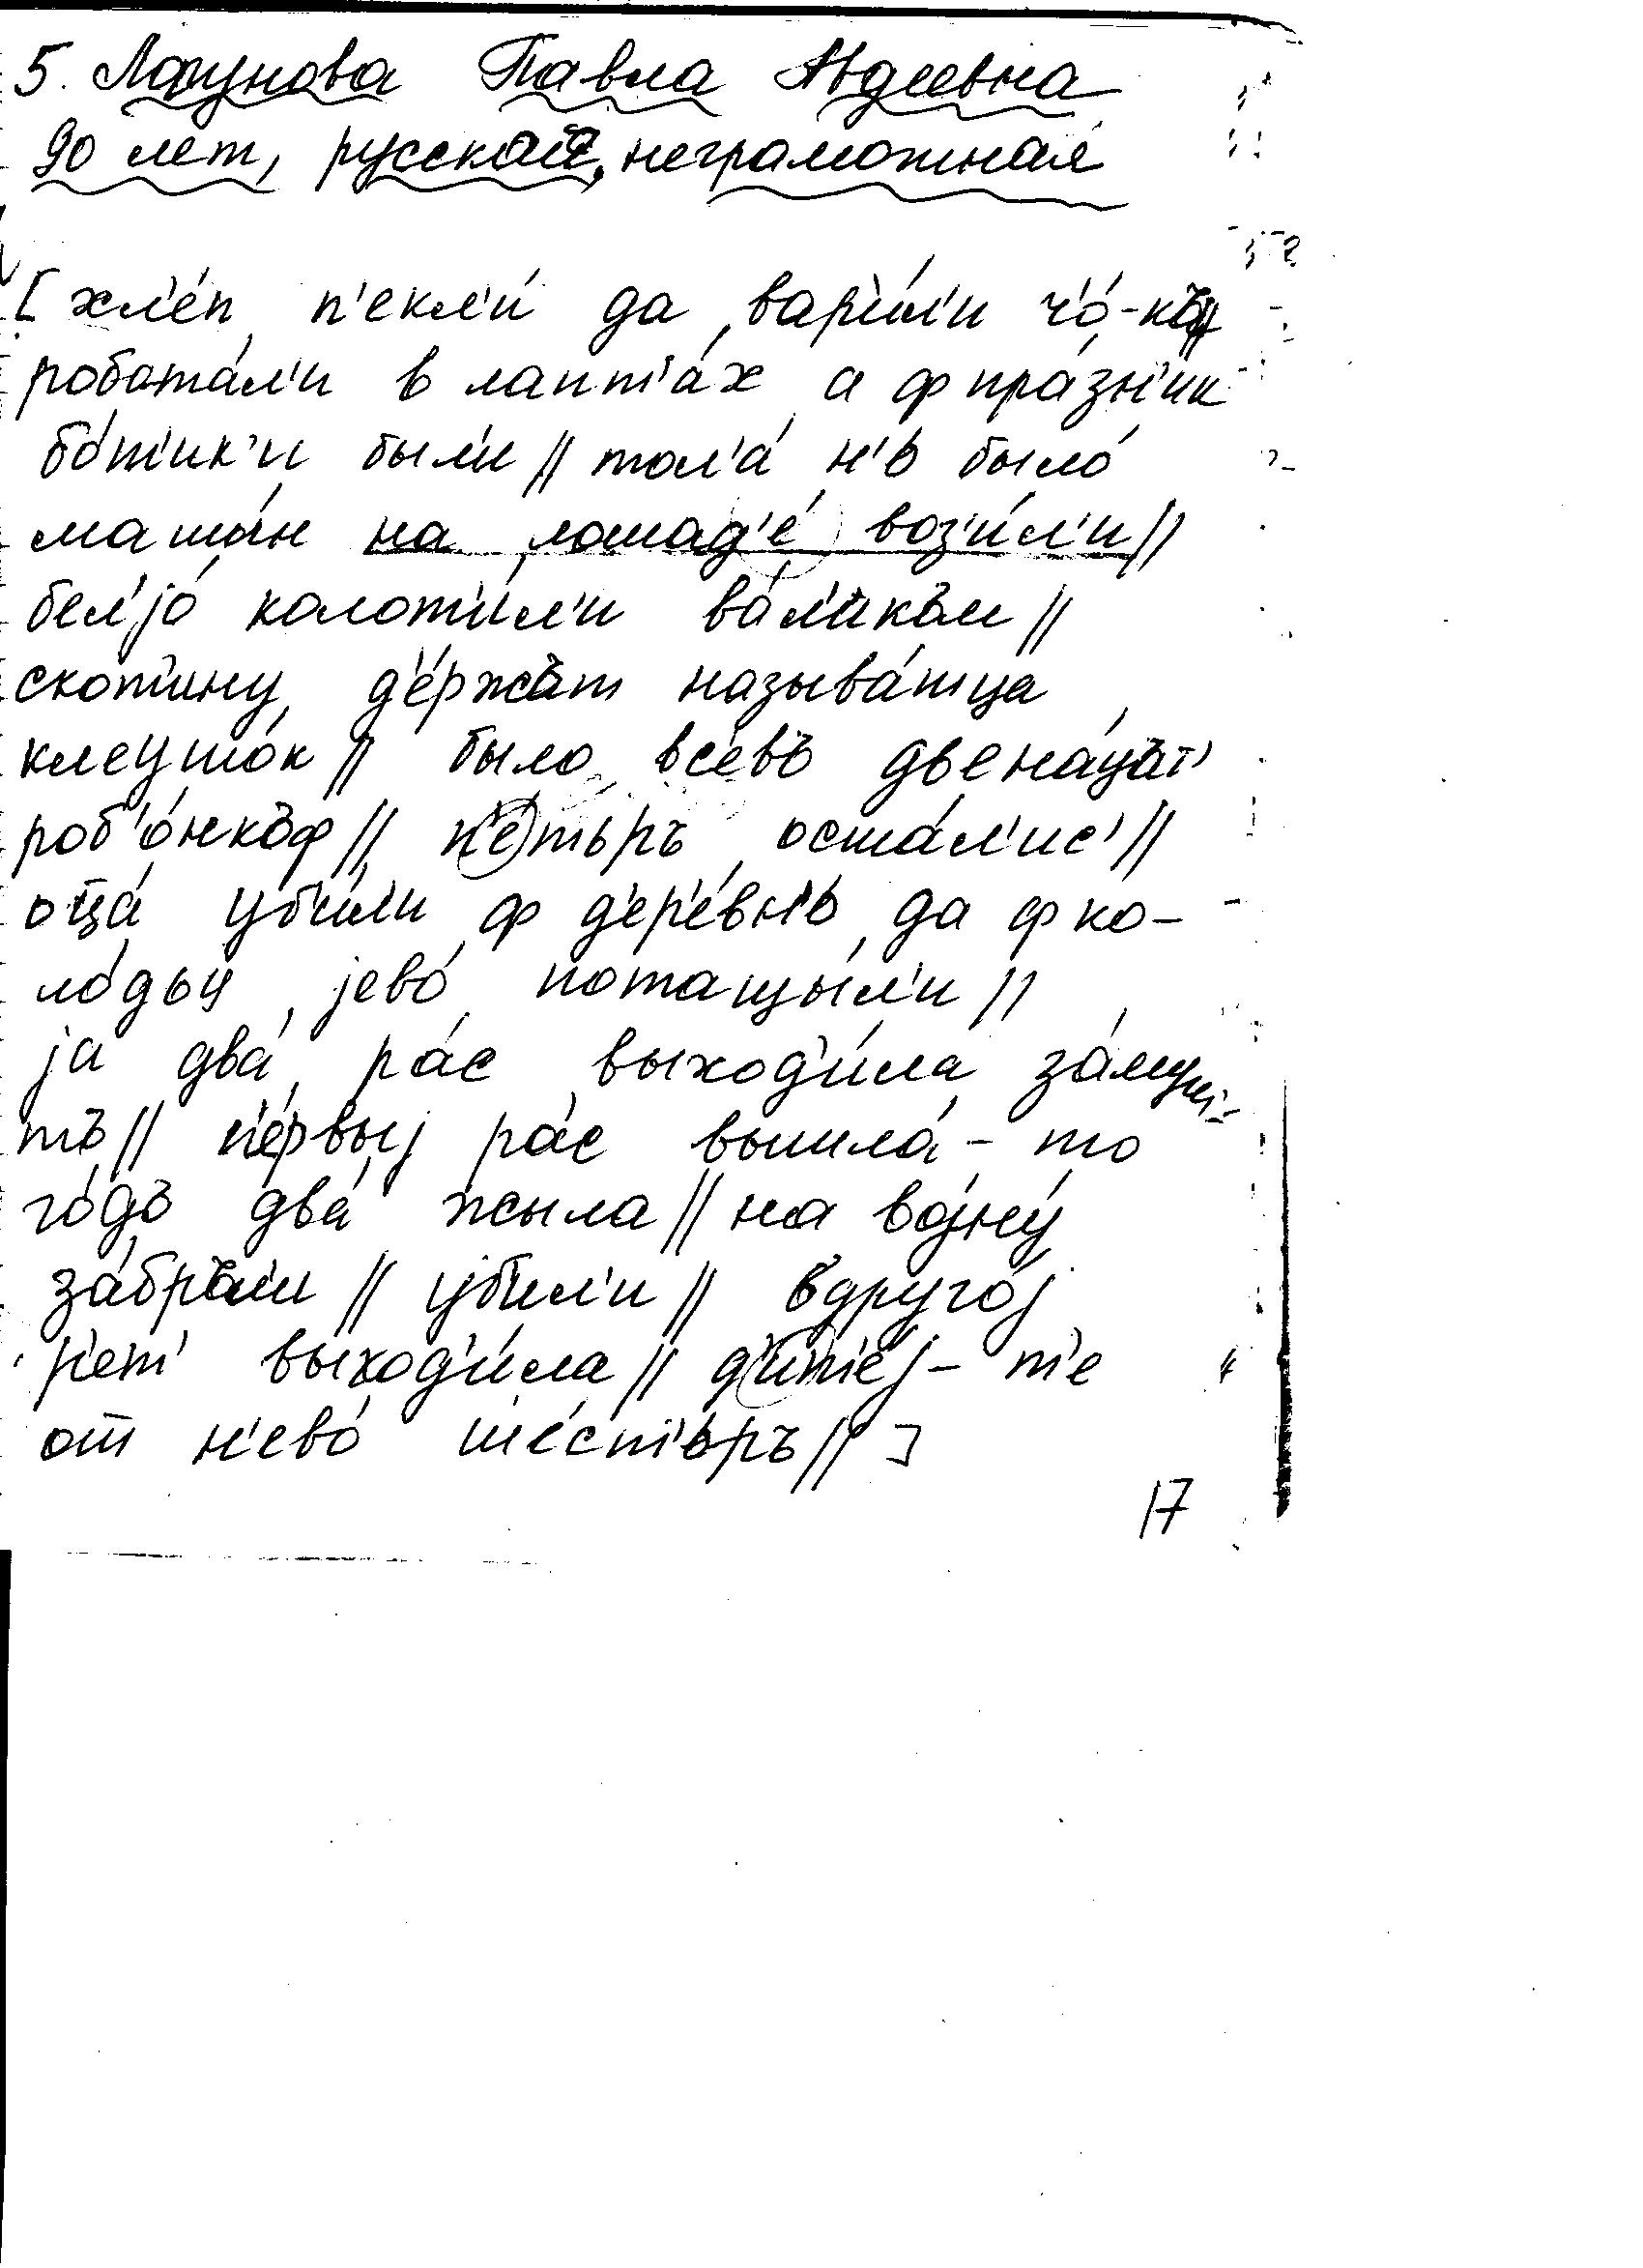 5. Лагунова Павла Авдеевна
90 лет, русская, неграмотная
[хл'е́п п'екл'и́ да вар'и́л'и ч'о́-къ//
робота́л'и в лапт'а́х а ф пра́з'н'ик
бо́т'ик'и был'и // тол'а́ н'ь было́
машы́н на лошад'е́ воз'и́л'и //
бел'jо́ колот'и́л'и ва́л'икъм //
скот'ину д'е́ржът называ́тца
клеушо́к // было всево́ двена́цът'
роб'о́нкъф // п'е́тьръ оста́л'ис' //
отца́ уб'и́л'и ф д'ер'е́вн'ь да ф ко-
ло́дьц jево́ потащы́л'и //
jа два́ ра́с выход'и́ла за́муш-
тъ // п'е́рвыj ра́с вышла́-то
го́дъ два́ жыла // на воjну́
за́бръл'и // уб'ил'и // вдруго́j
р'ет' выход'и́ла // д'ит'е́j-т'е
от н'ево́ ше́ст'ьръ // ]
17